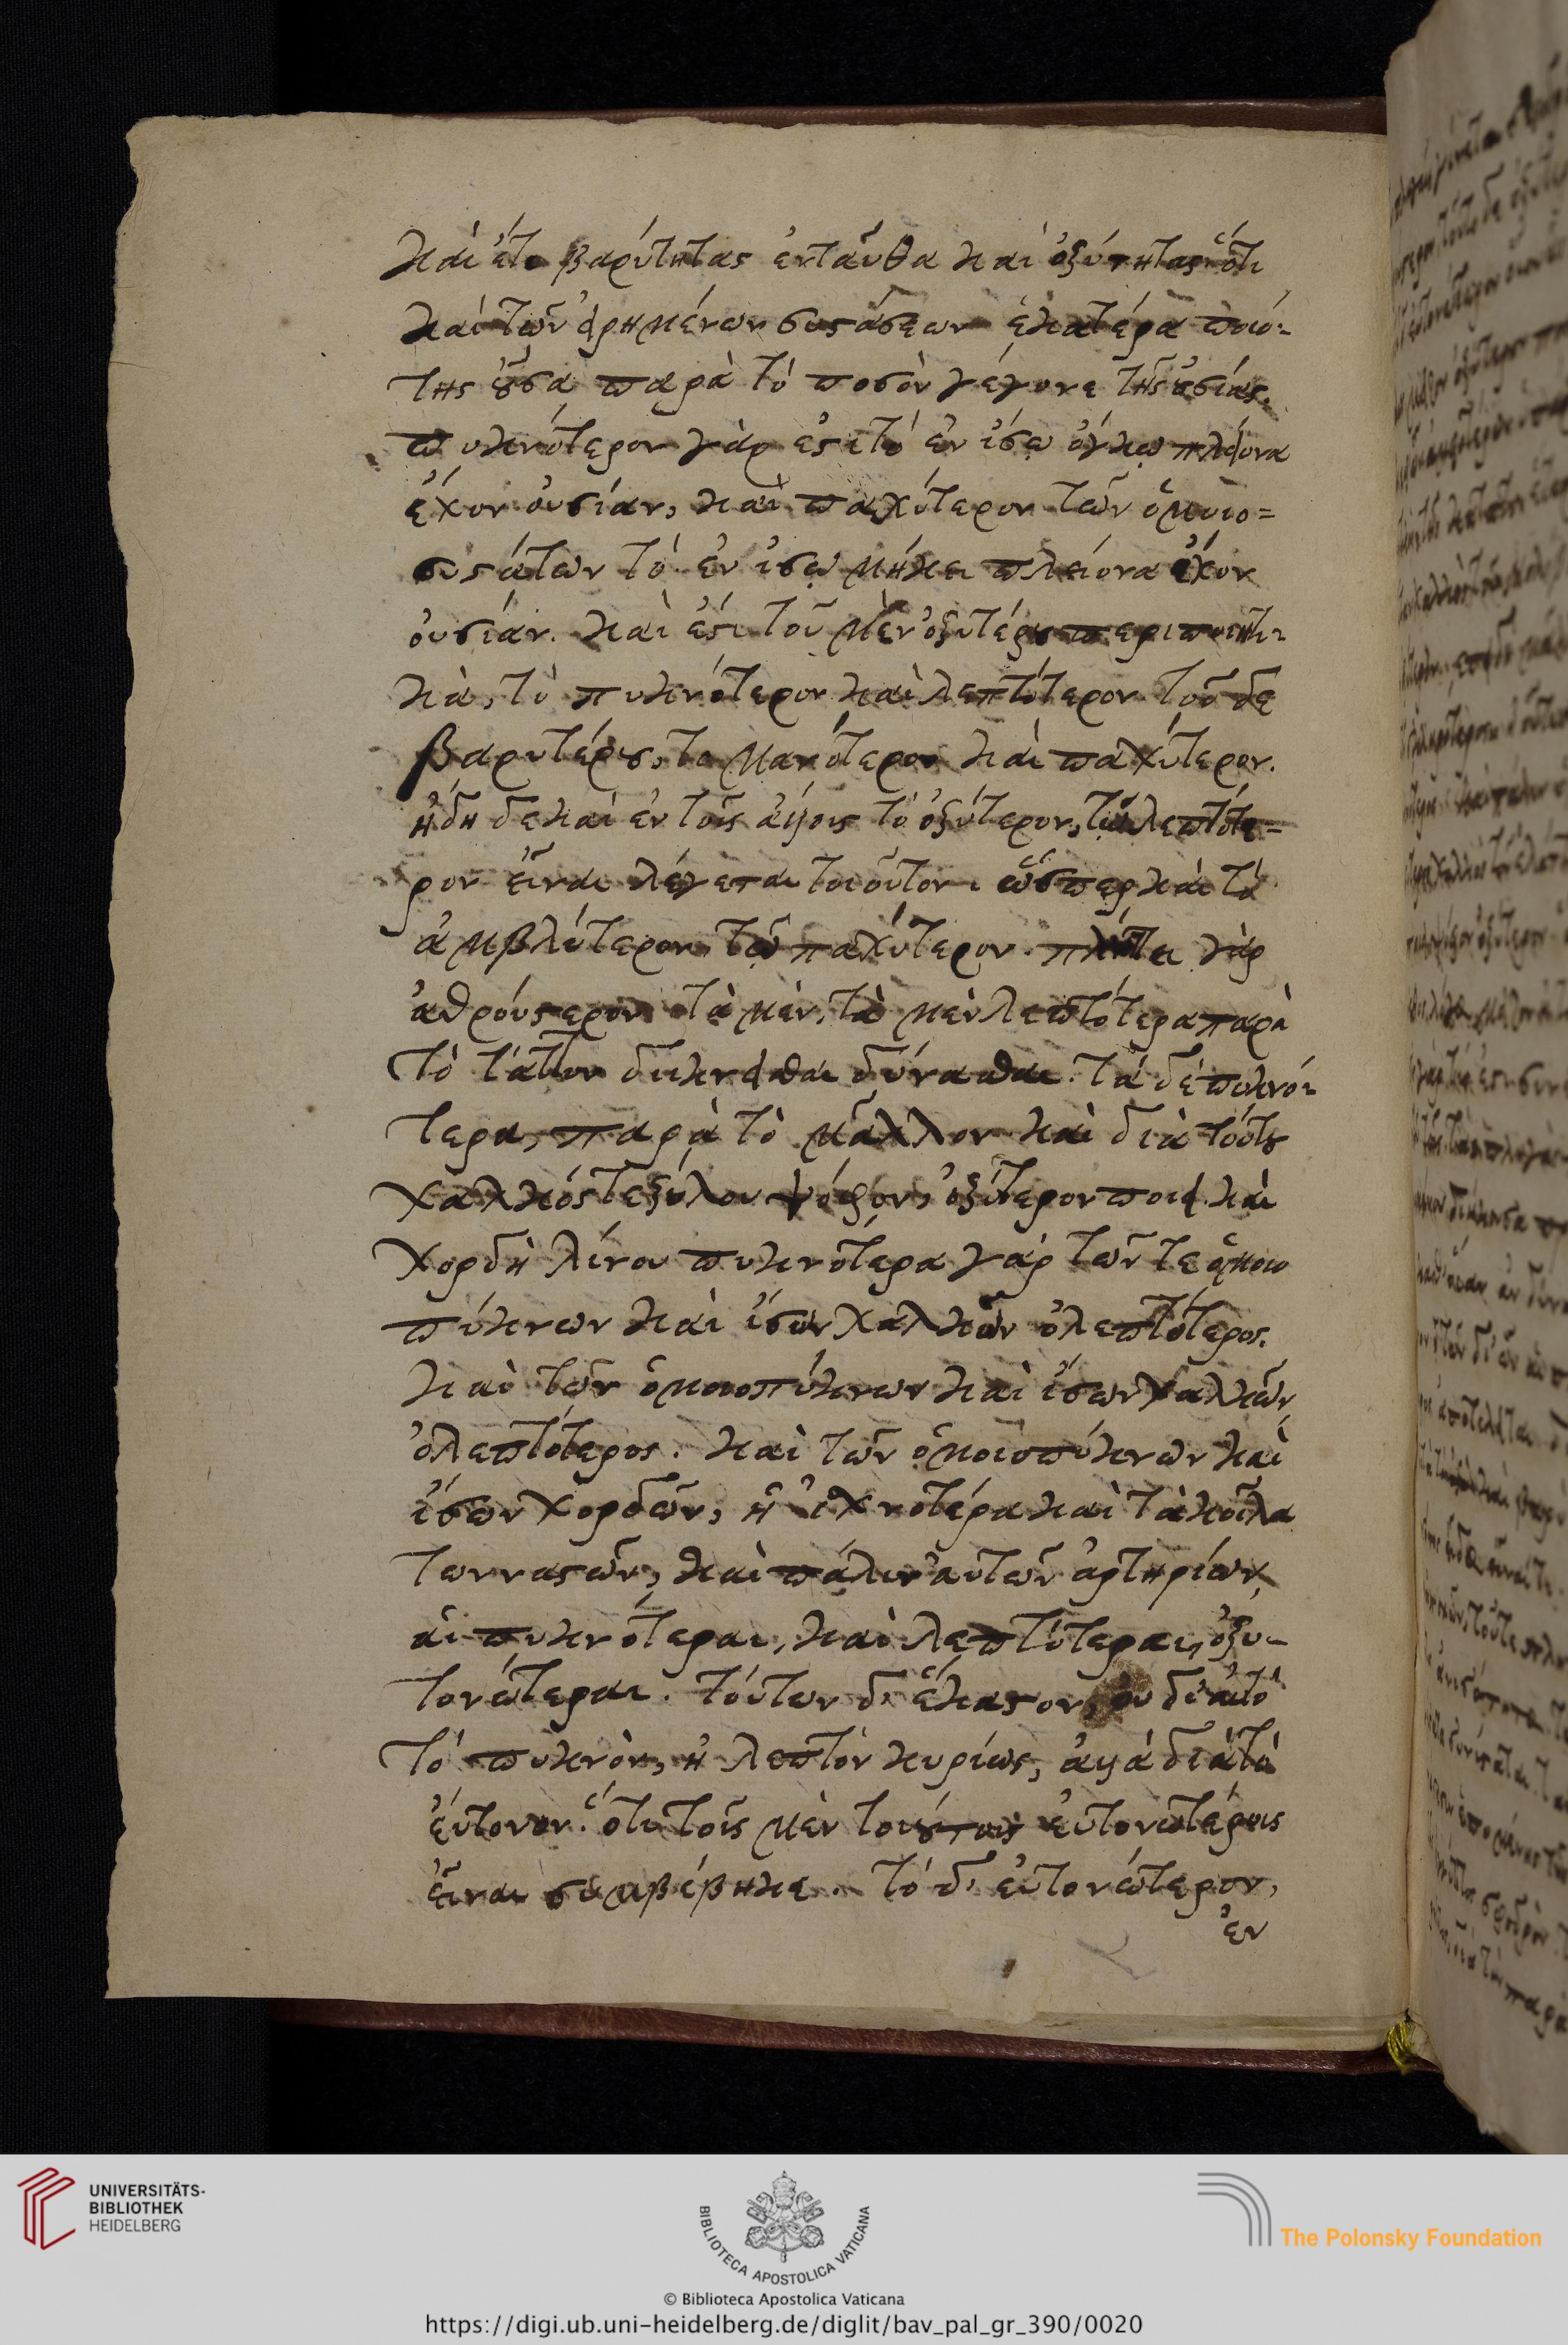 καὶ ἔτι βαρύτητας ἐνταῦθα καὶ ὀξύτητας ὅτι
καὶ τῶν εἰρημένων συστάσεων ἑκατέρα ποιό-
της οὖσα παρὰ τὸ ποσὸν γέγονε τῆς οὐσίας.
πυκνότερον γάρ ἐστι τὸ ἐν ἴσῳ ὄγκῳ πλείονα
ἔχον οὐσίαν, καὶ παχύτερον τῶν ὁμοιο=
συστάτων τὸ ἐν ἴσῳ μήκει πλείονα ἔχον
οὐσίαν. καὶ ἔστι τοῦ μὲν ὀξυτέρου περιποιητι-
κὰ, τὸ πυκνότερον καὶ λεπτότερον τοῦ δὲ
βαρυτέρου, τὸ μανότερον καὶ παχύτερον.
ἤδη δὲ καὶ ἐν τοῖς ἄλλοις τὸ ὀξύτερον, τῷ λεπτότε=
ρον εἶναι λέγεται τοιοῦτον. ὥσπερ καὶ τὸ
ἀμβλύτερον τῷ παχύτερον. πλήττει γὰρ
ἀθρούστερον τὰ μὲν, τὰ μὲν λεπτότερα παρὰ
τὸ τάττον διικνεῖσθαι δύνασθαι. τὰ δὲ πυκνό-
τερα, παρὰ τὸ μᾶλλον καὶ διὰ τοῦτο
χαλκός τε ξύλου ψόφον, ὀξύτερον ποιεῖ. καὶ
χορδὴ λίνου πυκνότερα γάρ τῶν τε ὁμοιο
πύκνων καὶ ἴσων χαλκῶν ὁ λεπτότερος.
καὶ τῶν ὁμοιοπύκνων καὶ ἴσων χαλκῶν
ὁ λεπτότερος. καὶ τῶν ὁμοιοπύκνων καὶ
ἴσων χορδῶν, ἡ ἰχνοτέρα καὶ τὰ κοῖλα
των ναστῶν, καὶ πάλιν αὐτῶν ἀρτηρίων
αἱ πυκνότεραι, καὶ λεπτότεραι, ὀξυ-
τονώτεραι. τούτων δ' ἕκαστον, οὐ δι' αὐτὸ
τὸ πυκνὸν, ἢ λεπτὸν κυρίως, ἀλλὰ διὰ τὸ
εὔτονον. ὅτι τοῖς μὲν τοιούτοις εὐτονωτέροις
εἶναι συμβέβηκε. τὸ δ' εὐτονώτερον,
ἐν
UNIVERSITÄTS-
BIBLIOTHEK
HEIDELBERG
BIBLIOTECA APOSTOLICA VATICANA
The Polonsky Foundation
© Biblioteca Apostolica Vaticana
https://digi.ub.uni-heidelberg.de/diglit/bav_pal_gr_390/0020